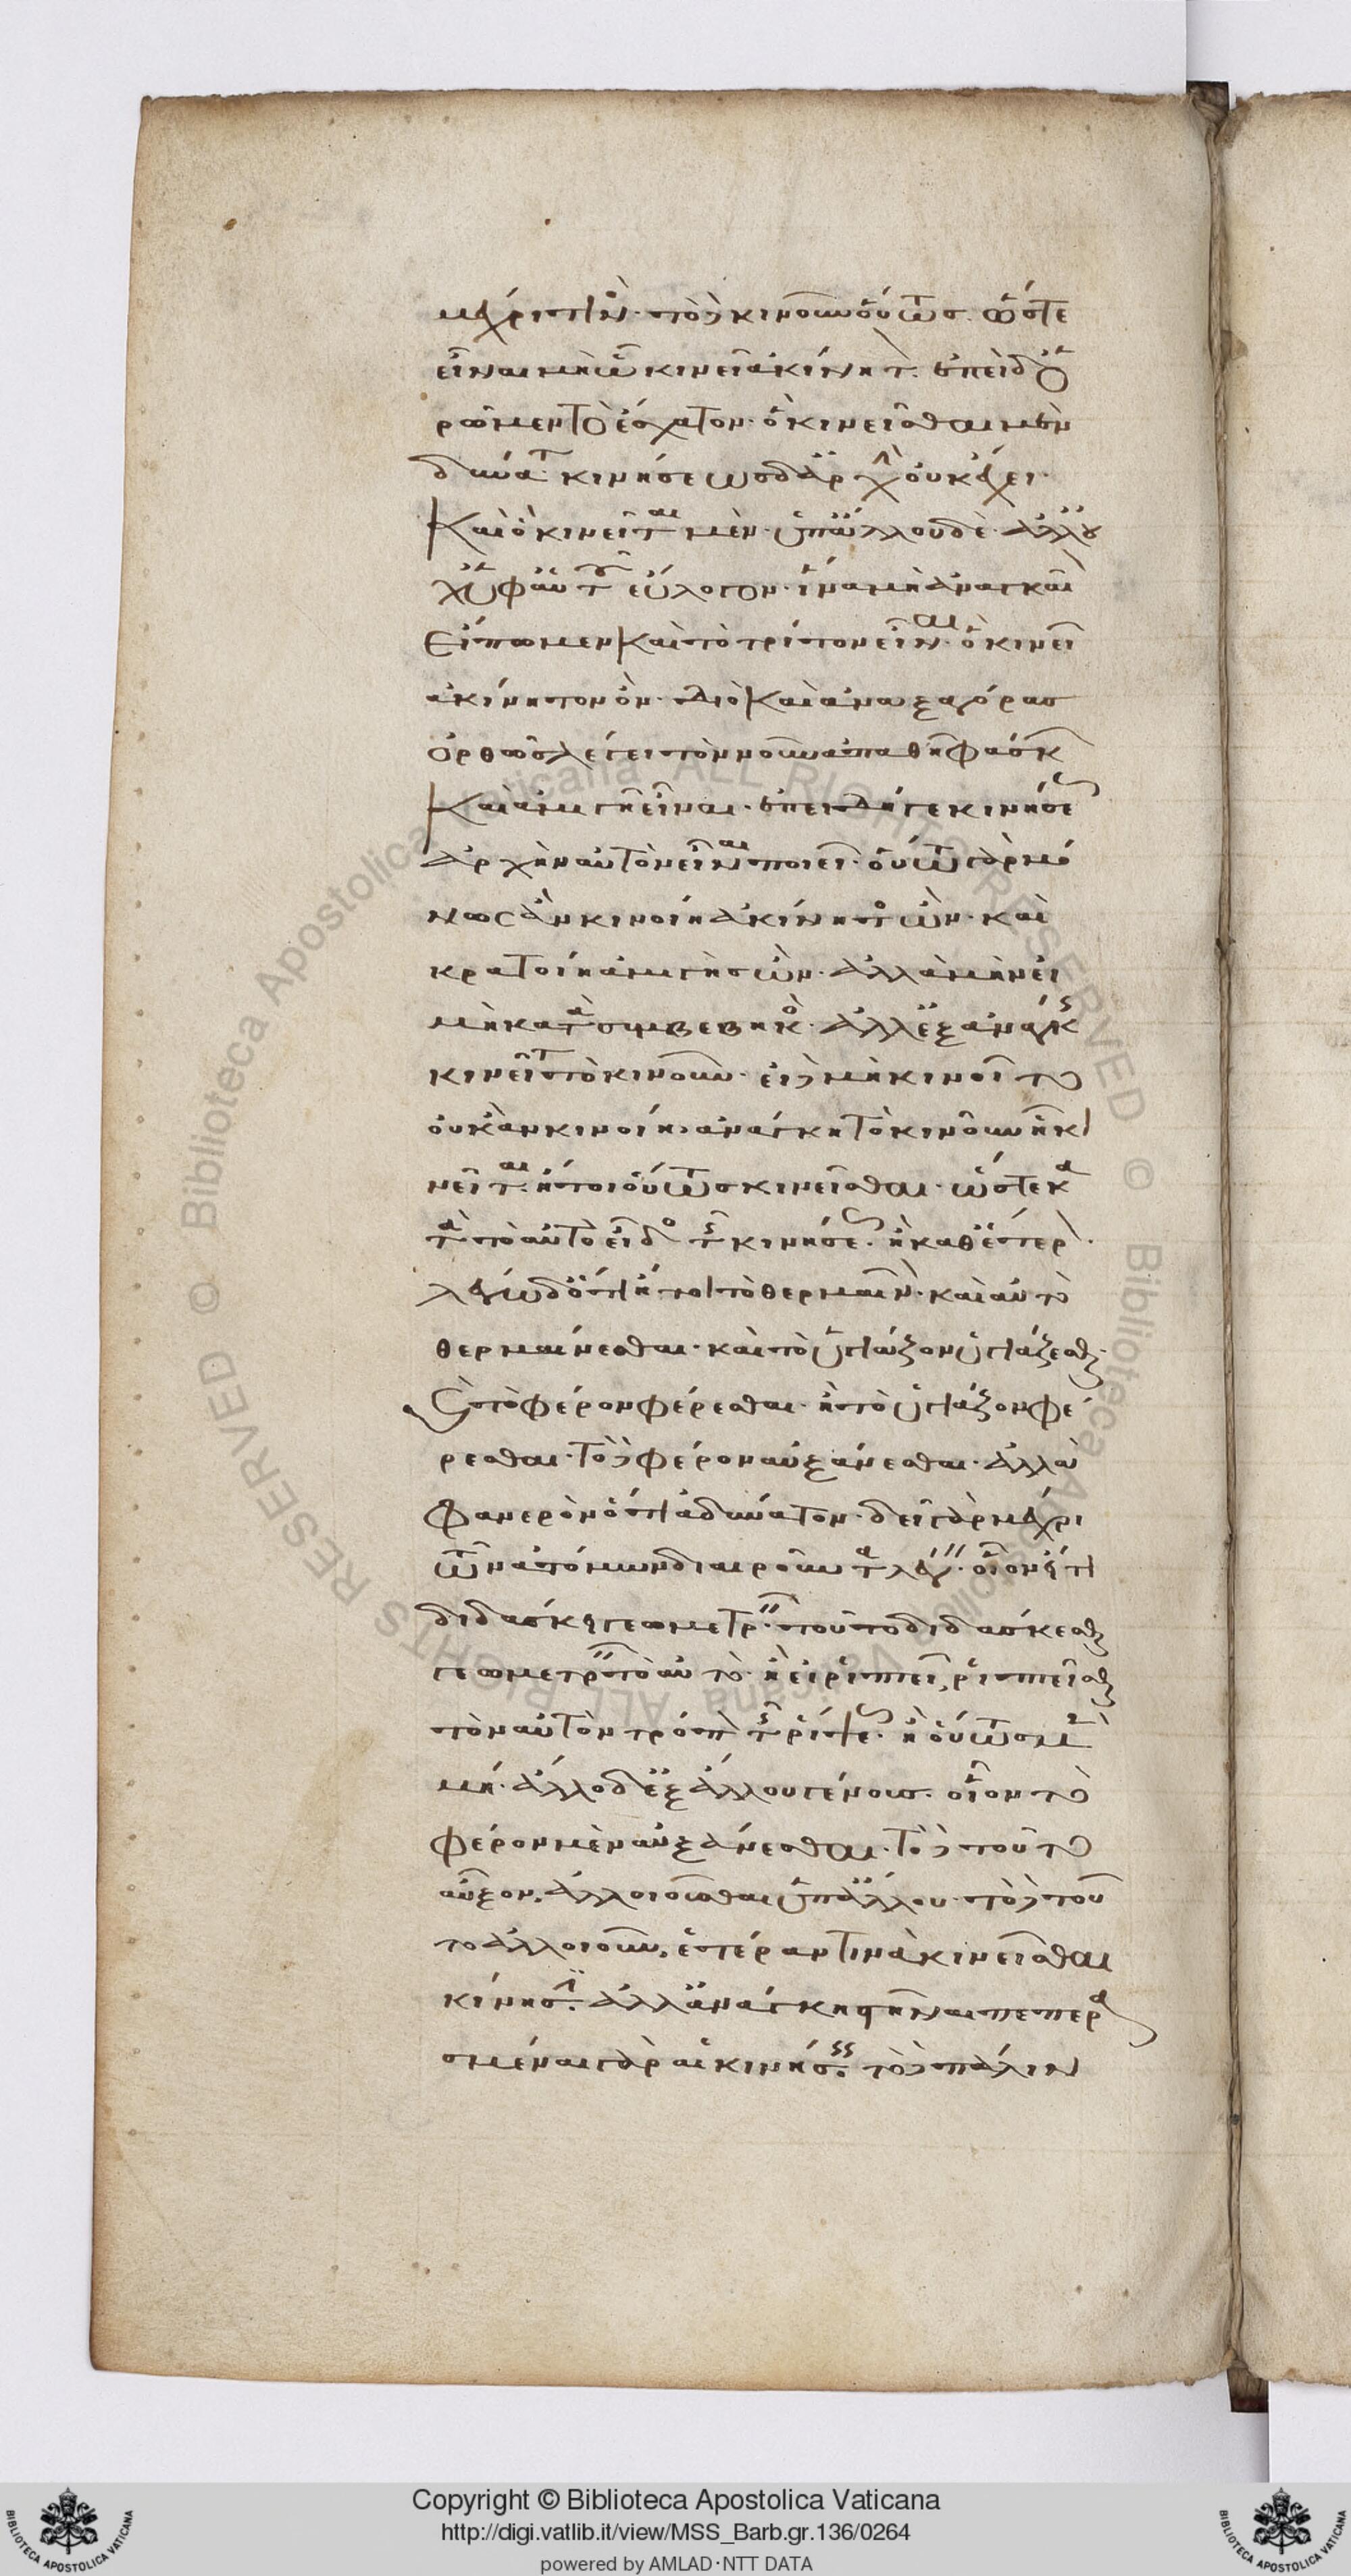 μέχρι τινός· τὸ δὲ κινοῦν οὕτως ὥστε
εἶναι μὴ ᾧ κινεῖ ἀκίνητον. ἐπεὶ δὲ ὁ
ρῶμεν τὸ ἔσχατον· ὃ κινεῖσθαι μὲν
δύναται κινήσεως δ' ἀρχὴν οὐκ ἔχει·
Καὶ ὃ κινεῖται μὲν· ὑπ' ἄλλου δὲ ἀλλ' οὐ
χ ὑφ' αὑτοῦ εὔλογον· ἵνα μὴ ἀναγκαῖον
Εἴπωμεν καὶ τὸ τρίτον εἶναι· ὃ κινεῖ
ἀκίνητον ὄν· διὸ καὶ ἀναξαγόρας
ὀρθῶς λέγει τὸν νοῦν ἀπαθῆ φάσκων
Καὶ ἀμιγῆ εἶναι· ἐπειδή γε κινήσεως
ἀρχὴν αὐτὸν εἶναι ποιεῖ· οὕτω γὰρ μό
νως ἂν κινοίη ἀκίνητος ὤν· καὶ
κρατοίη ἀμιγὴς ὤν· ἀλλὰ μὴν εἰ
μὴ κατὰ συμβεβηκὸς ἀλλ' ἐξ ἀνάγκης
κινεῖται τὸ κινοῦν· εἰ δὲ μὴ κινοῖτο
οὐκ ἂν κινοίη· ἀνάγκη τὸ κινοῦν ᾗ κι
νεῖται· ἤτοι οὕτω κινεῖσθαι· ὥστε κα
τὰ τὸ αὐτὸ εἶδος τῆς κινήσεως· ἢ καθ' ἕτερον·
λέγω δ' ὅτι ἤτοι τὸ θερμαῖνον· καὶ αὐτὸ
θερμαίνεσθαι· καὶ τὸ ὑγιάζον ὑγιάζεσθαι·
Καὶ τὸ φέρον φέρεσθαι· ἢ τὸ ὑγιάζον φέ
ρεσθαι· τὸ δὲ φέρον αὐξάνεσθαι· ἀλλὰ
φανερὸν ὅτι ἀδύνατον· δεῖ γὰρ μέχρι
τῶν ἀτόμων διαιροῦντα λέγειν· οἷον εἴ τι
διδάσκει γεωμετρεῖν· τοῦτο διδάσκεσθαι
γεωμετρεῖν τὸ αὐτό· ἢ εἰ ῥιπτεῖ, ῥιπτεῖσθαι
τὸν αὐτὸν τρόπον τῆς ῥίψεως· ἢ οὕτως μὲν
μή· ἄλλο δ' ἐξ ἄλλου γένους· οἷον τὸ
φέρον μὲν αὐξάνεσθαι· τὸ δὲ τοῦτο
αὖξον· ἀλλοιοῦσθαι ὑπ' ἄλλου· τὸ δὲ τοῦ
το ἀλλοιοῦν, ἑτέραν τινὰ κινεῖσθαι
κίνησιν· ἀλλ' ἀνάγκη στῆναι πεπερα
σμέναι γὰρ αἱ κινήσεις· τὸ δὲ πάλιν